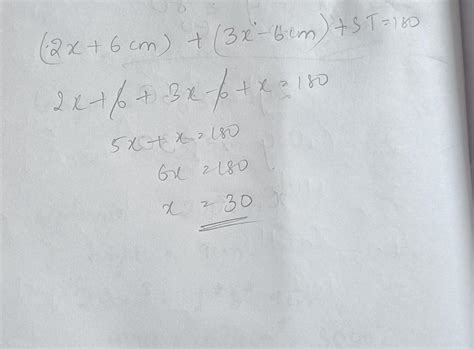 (2x + 6 cm) + (3x - 6 cm) + ST = 180
2x + 6 + 3x - 6 + x = 180
5x + x = 180
6x = 180
x = 30